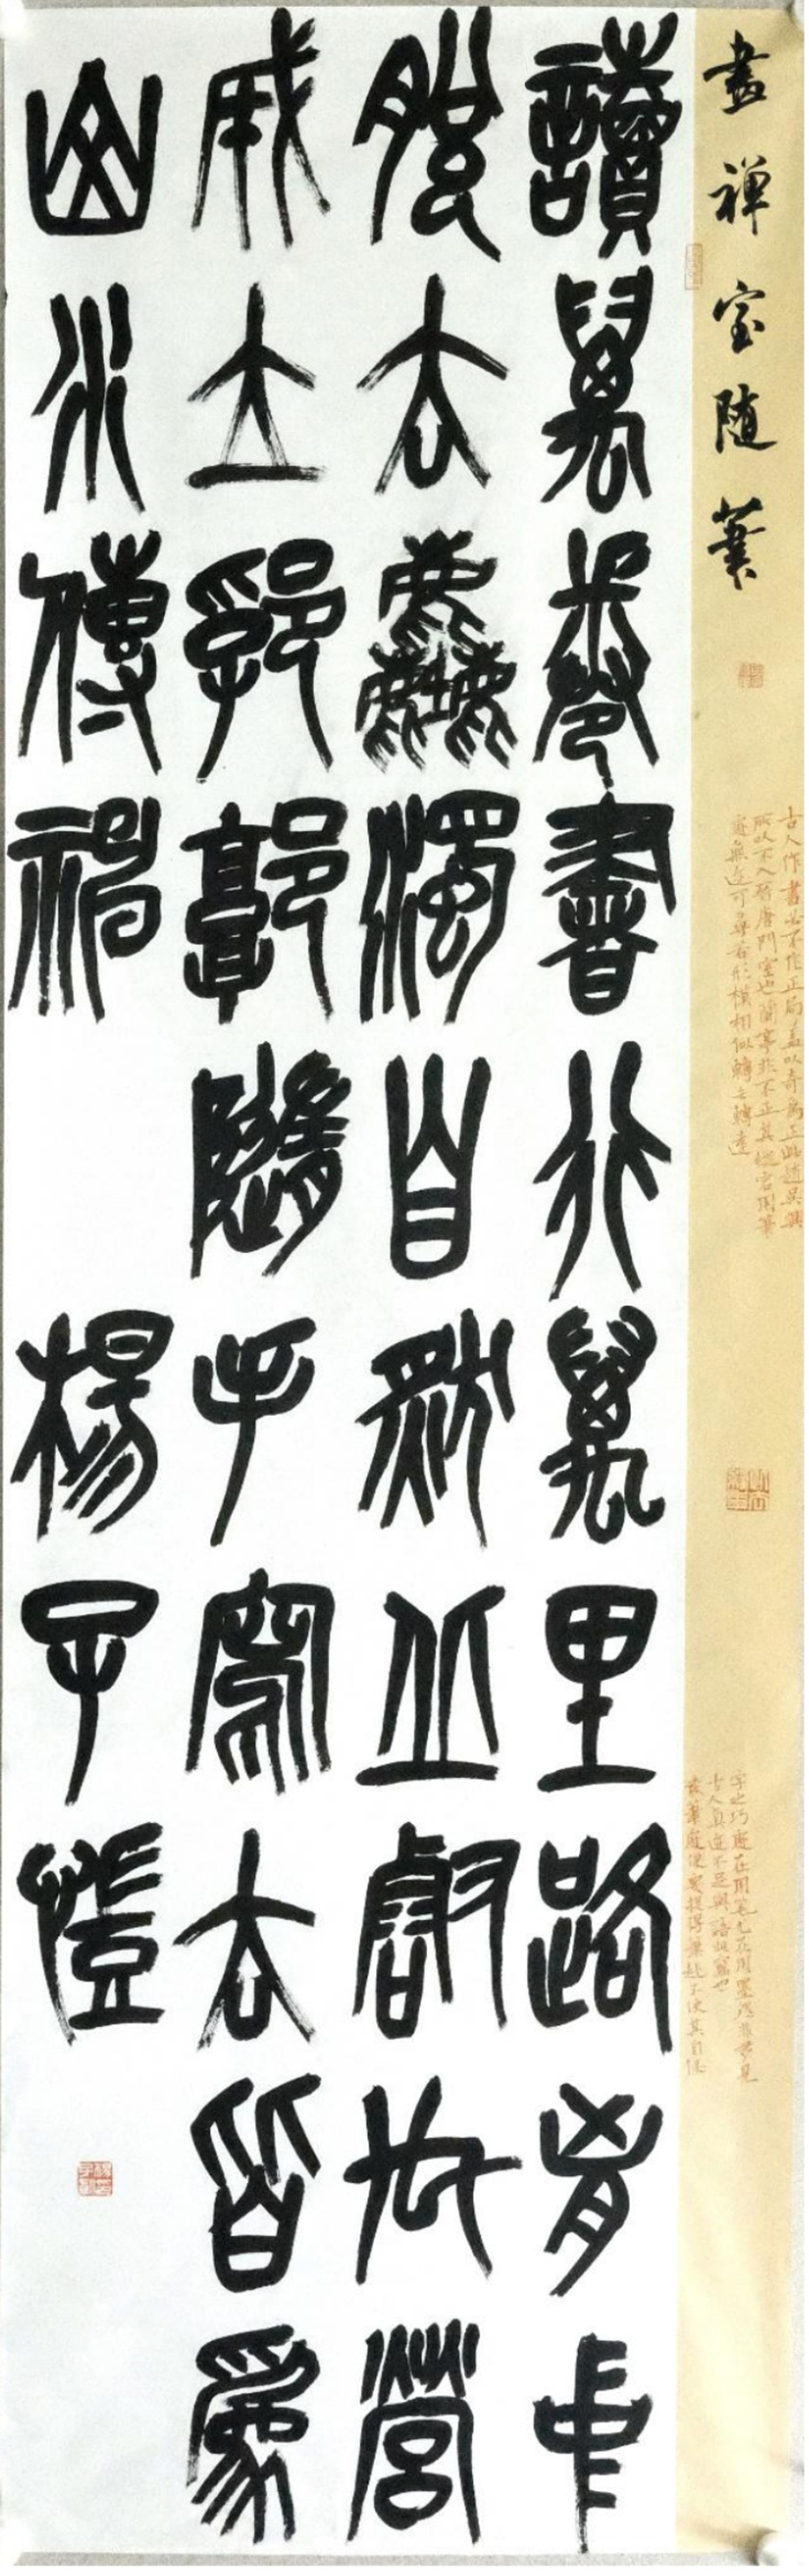 畫禅室随筆
古人作書必不作正局蓋以奇爲正此趙吳興
所以不入晉唐門室也蘭亭非不正其縱宕用筆
處無迹可尋若形模相似轉去轉遠
字之巧處在用筆尤在用墨然非多見
古人真迹不足與語此竅也
發筆處便要提得筆起不使其自偃
讀萬卷書行萬里路胷中
脫去塵濁自然丘壑内營
成立鄞鄂隨手寫去皆爲
山水傳神 楊子愷